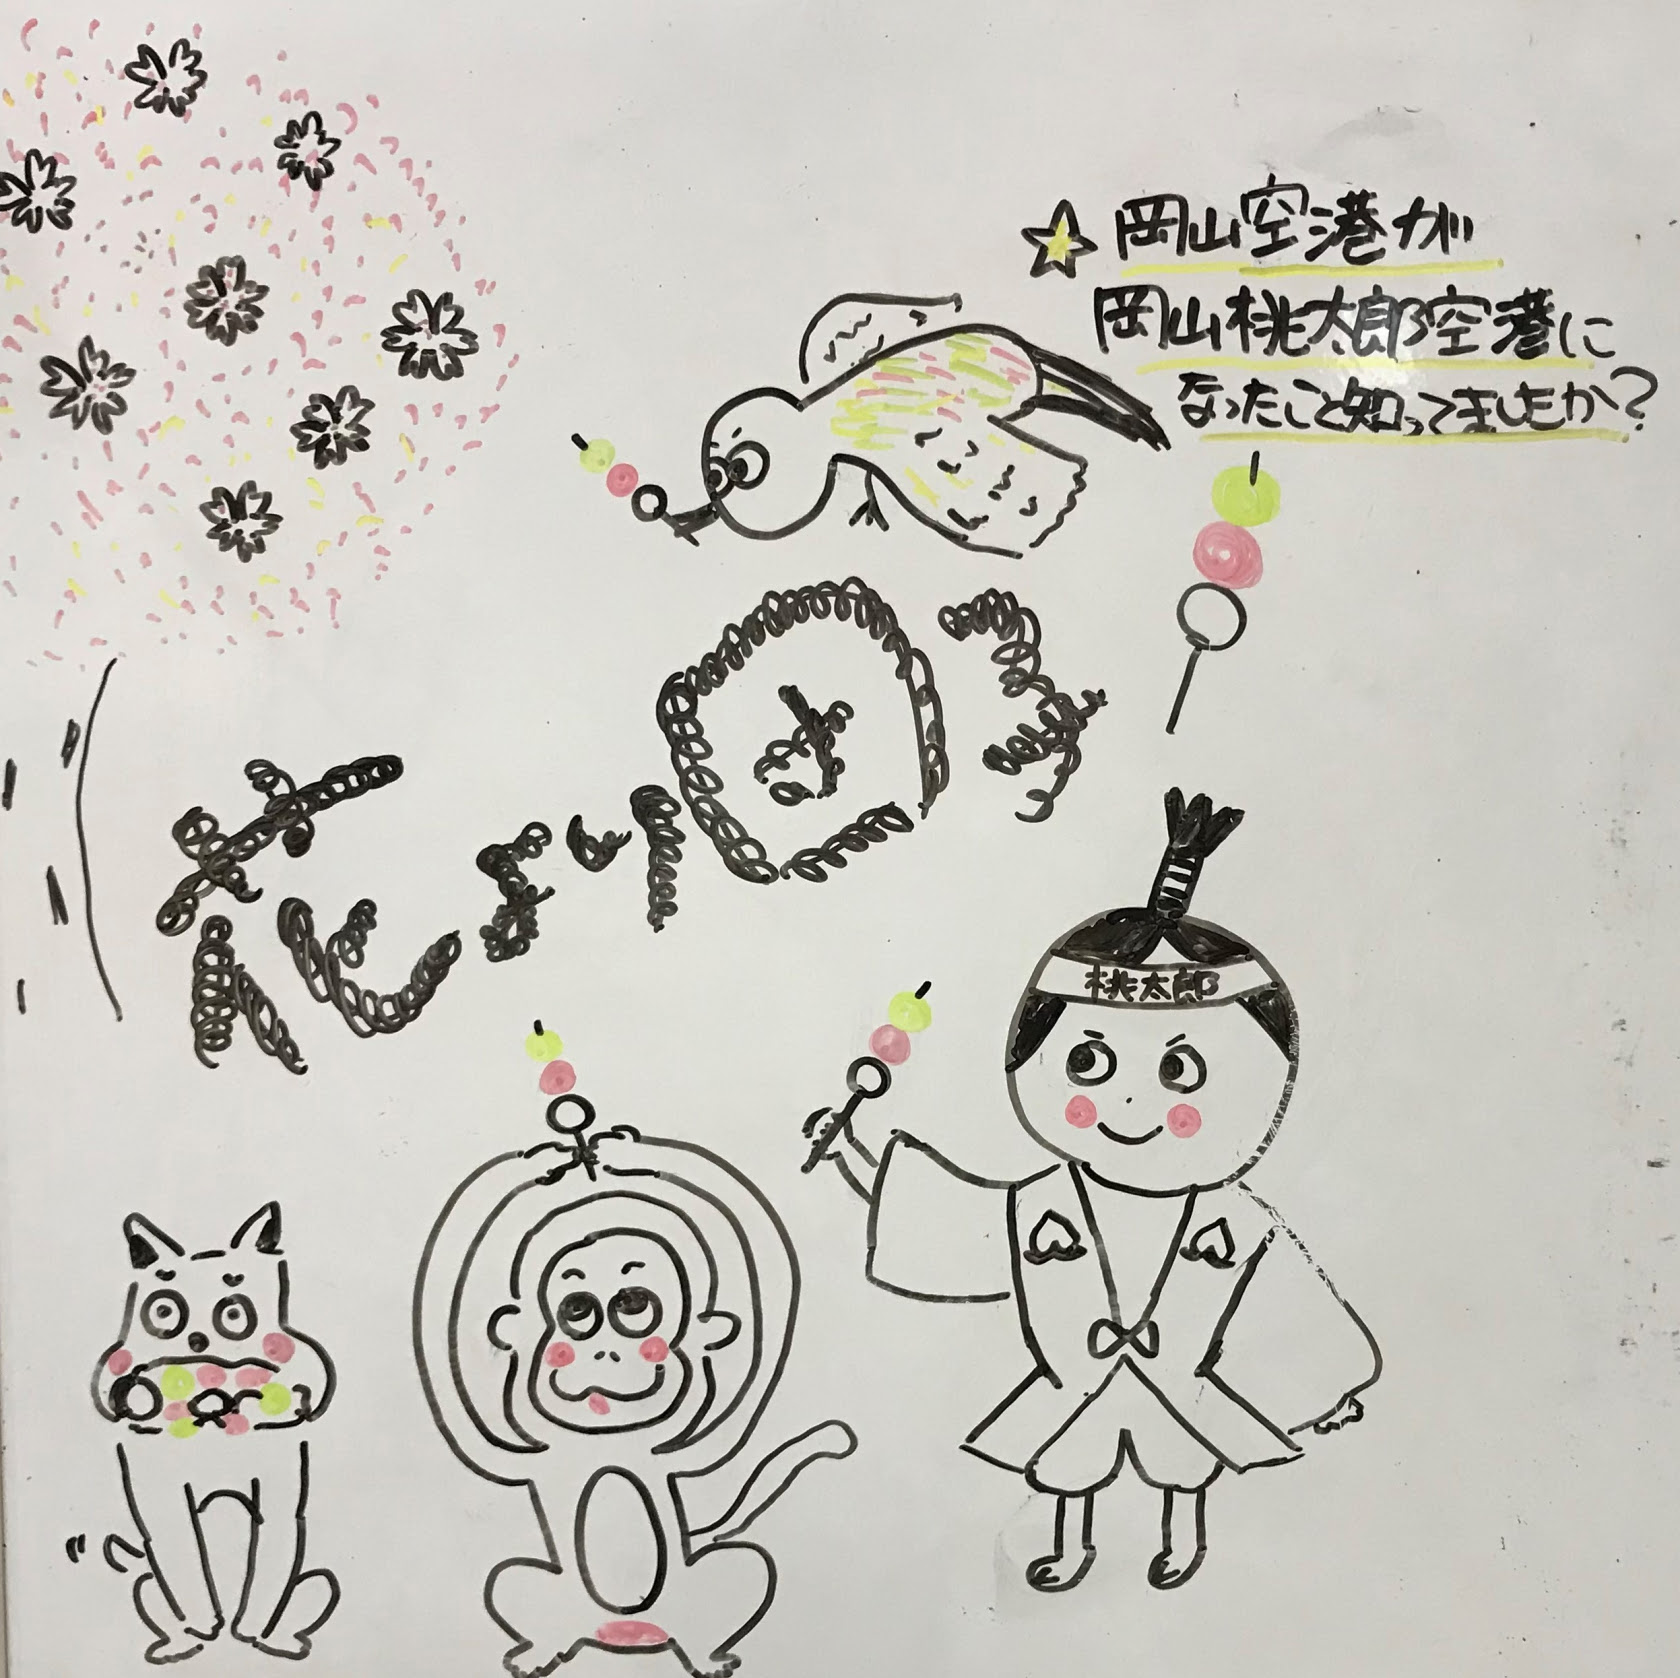 ☆岡山空港が
岡山桃太郎空港に
なったこと知ってましたか?
花より団子
桃太郎